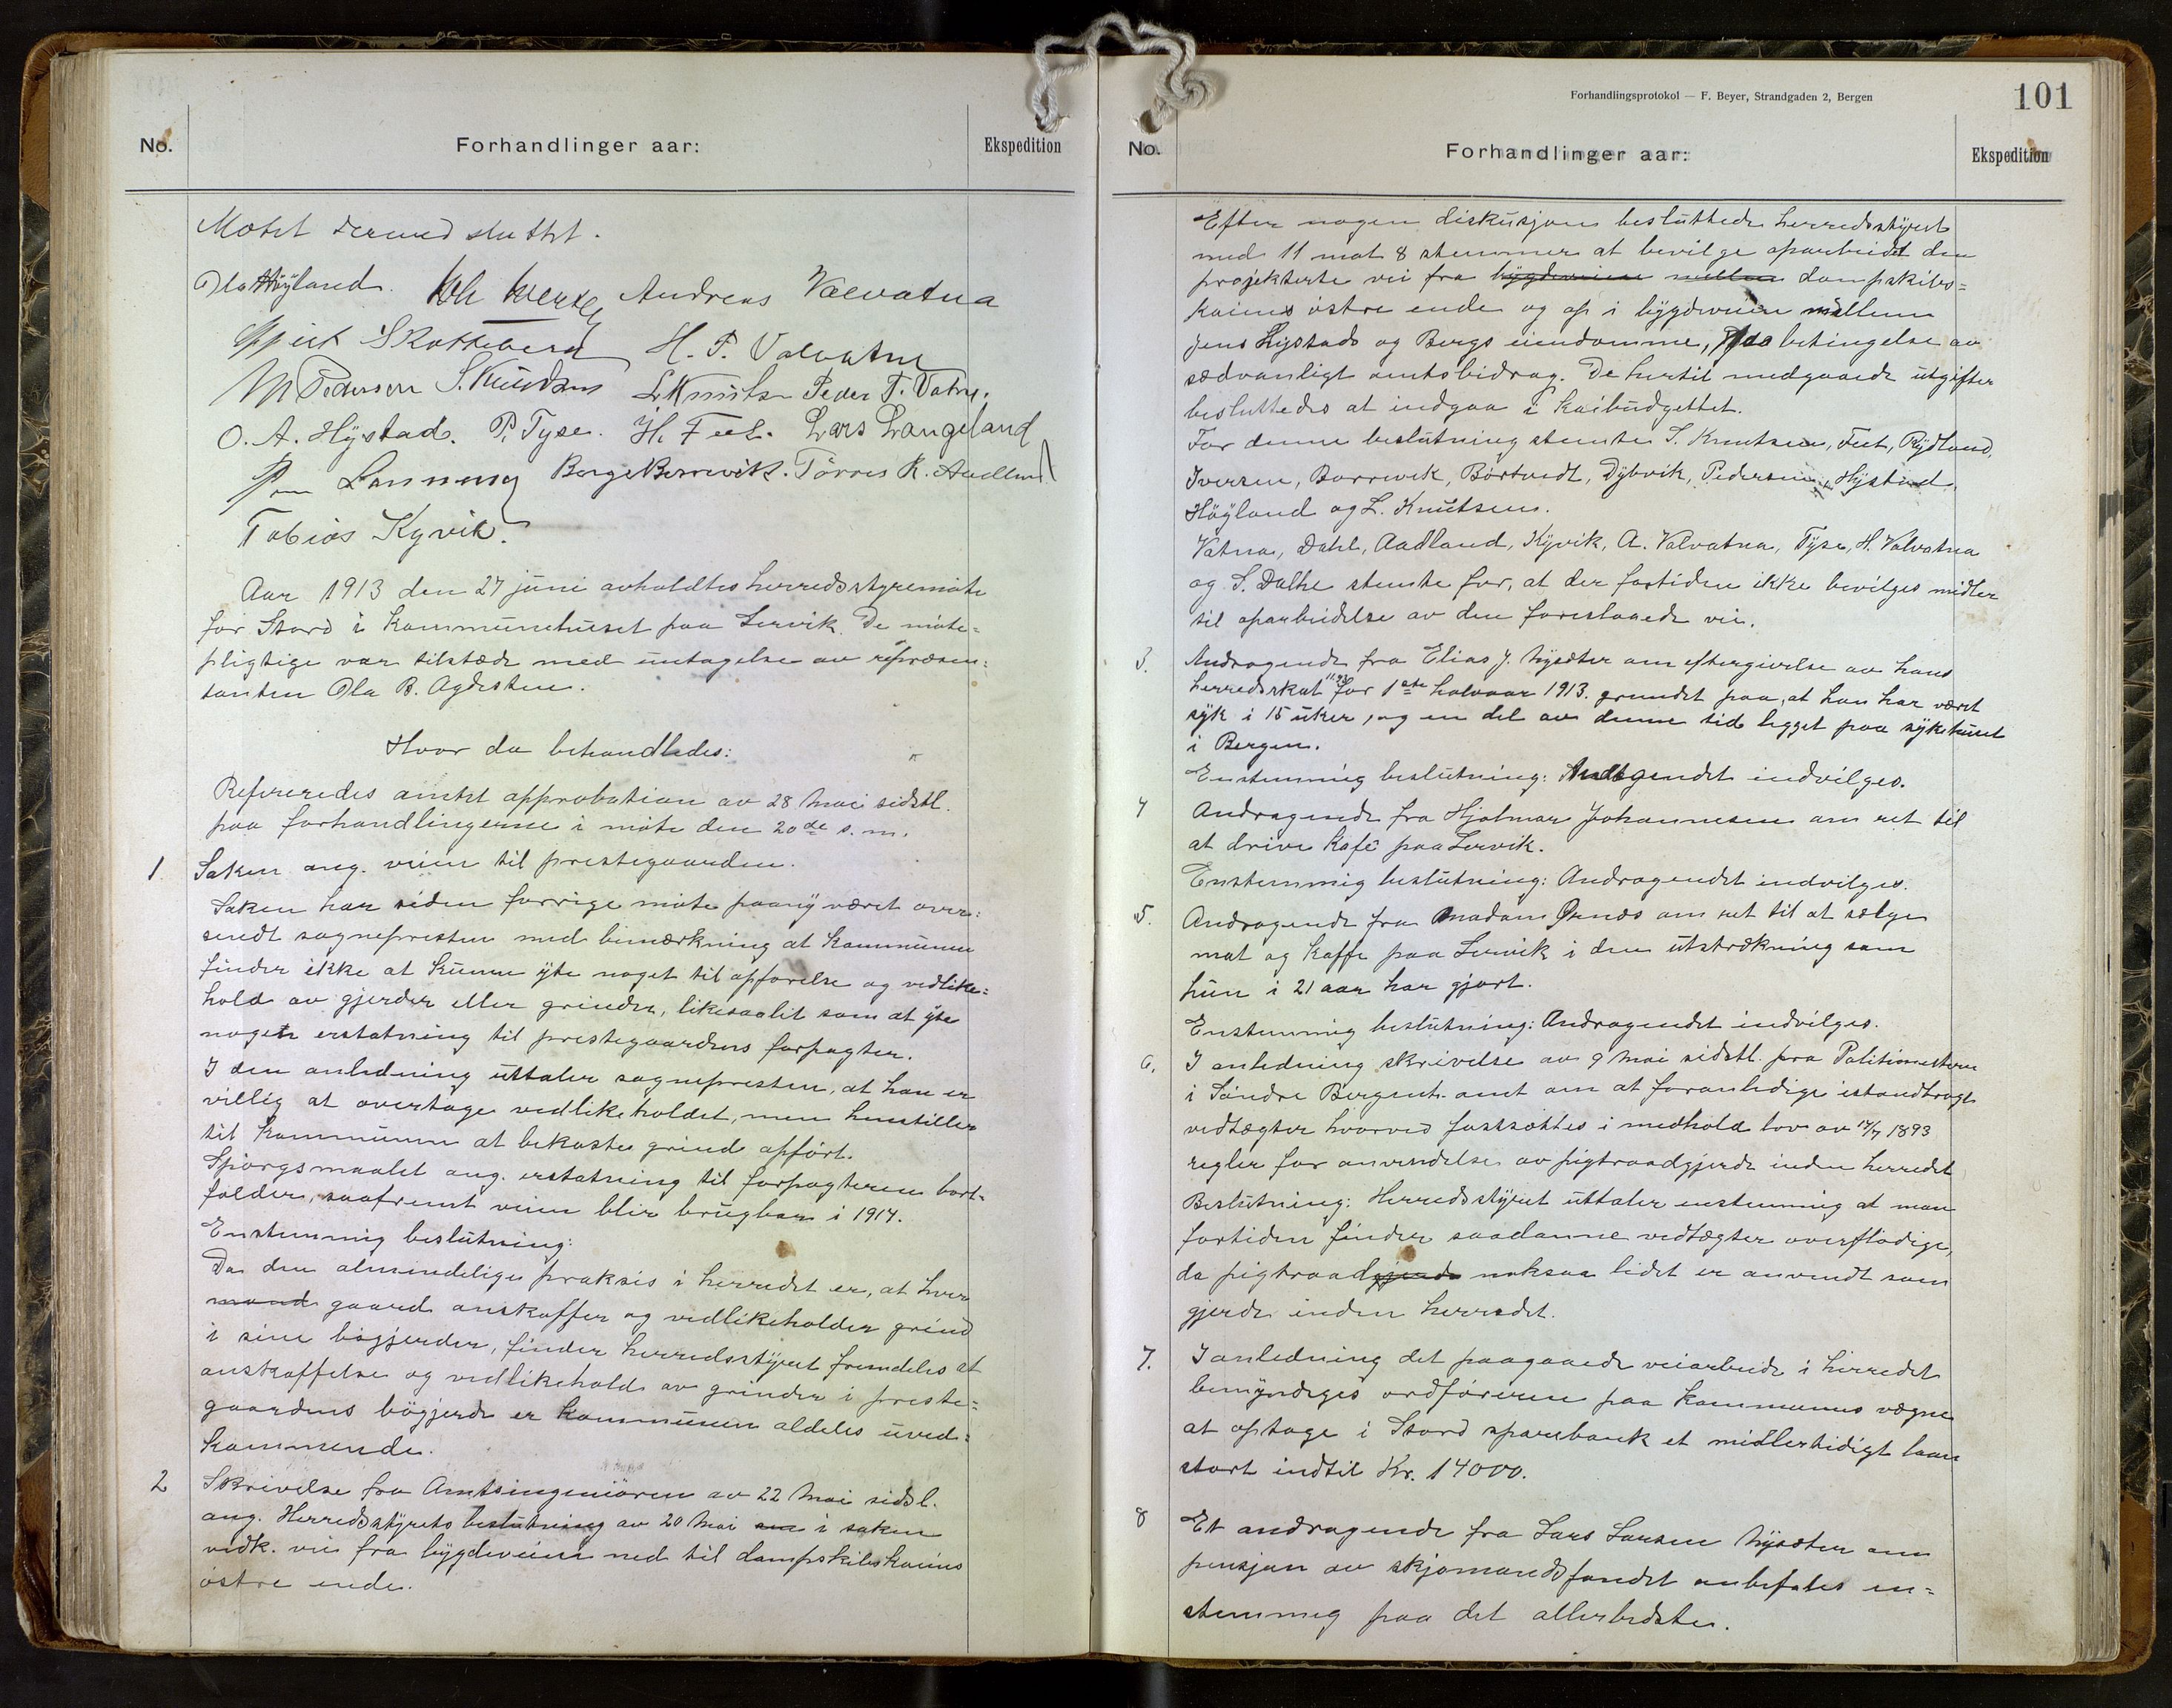 No.
Forhandlinger aar:
Ekspedition
Møtet dermed sluttet.
Ola Høyland. Andreas Valvatna
H. T. Valvatne
M Pedersen S. Knudsen L Knutsen Peder T. Vatna.
O. A. Hÿstad. P. Tyse. H. Feet. Lars Langeland
Lønning Børge Børrevik. Tørres K. Aadland
Tobias Kyvik.
Aar 1913 den 27 juni avholdtes herredsstyremøte
for Stord i Kommunehuset paa Lervik. De møte-
pligtige var tilstæde med untagelse av repræsen-
tanten Ola B. Agdesteen.
Hvor da behandledes:
Refereredes amtet approbation av 28 mai sidstl.
paa forhandlingerne i møte den 20de s.m.
1 Saken ang. veien til prestegaarden.
Saken har siden forrige møte paany været over-
sendt sognepresten med bemærkning at kommunen
finder ikke at kunne yte noget til opførelse og vedlike-
hold av gjerder eller grinder, likesaalit som at yte
nogen erstatning til prestegaardens forpagter.
I den anledning uttaler sognepresten, at han er
villig at overtage vedlikeholdet, men henstiller
til kommunen at bekoste grind opført.
Spørgsmaalet ang. erstatning til forpagteren bort-
falder, saafremt veien blir brugbar i 1914.
Enstemmig beslutning:
Da den almindelige praksis i herredet er, at hver
mand gaard anskaffer og vedlikeholder grind
i sine bøgjerder, finder herredsstyret fremdeles at
anskaffelse og vedlikehold av grinder i preste-
gaardens bøgjerde er kommunen aldeles uved-
kommende.
2 Skrivelse fra Amtsingeniøren av 22 mai sidsl.
ang. Herredsstyrets beslutning av 20 mai i saken
vedk. vei fra bygdeveien ned til dampskibskaiens
østre ende.
Forhandlingsprotokol — F. Beyer, Strandgaden 2, Bergen
101
No.
Forhandlinger aar:
Ekspedition
Efter nogen diskusjon besluttede herredsstyret
med 11 mot 8 stemmer at bevilge oparbeidet den
projekterte vei fra bygdeveien mellem dampskibs-
kaiens østre ende og op i bygdeveien mellem
Jens Hystads og Bergs eiendomme, paa betingelse av
sædvanligt amtsbidrag. De hertil medgaaede utgifter
besluttedes at indgaa i kaibudgettet.
For denne beslutning stemte S. Knutsen, Feet, Rydland,
Iversen, Børrevik, Børtvedt, Dybvik, Pedersen, Hystad,
Høyland og L. Knutsen.
Vatna, Dahl, Aadland, Kyvik, A. Valvatna, Tyse, H. Valvatna
og S. Dalhe stemte for, at der fortiden ikke bevilges midler
til oparbeidelse av den foreslaaede vei.
3. Andragende fra Elias J. Nysæter om eftergivelse av hans
herredsskat for 1ste halvaar 1913. grundet paa, at han har været
syk i 15 uker, og en del av denne tid ligget paa sykehuset
i Bergen.
Enstemmig beslutning: Andragendet indvilges.
4 Andragende fra Hjalmar Johannesen om ret til
at drive Kafe paa Lervik.
Enstemmig beslutning: Andragendet indvilges.
5. Andragende fra Madam Ørnes om ret til at sælge
mat og Kaffe paa Lervik i den utstrækning som
hun i 21 aar har gjort.
Enstemmig beslutning: Andragendet indvilges.
6. I anledning skrivelse av 9 mai sidstl. fra Politimesteren
i Søndre Bergenh. amt om at foranledige istandbragt
vedtægter hvorved fastsættes i medhold lov av 17/7 1893
regler for anvendelse av pigtraadgjerde inden herredet
Beslutning: Herredsstyret uttaler enstemmig at man
fortiden finder saadanne vedtægter overflødige,
da pigtraadgjerde noksaa lidet er anvendt som
gjerde inden herredet.
7. I anledning det paagaaede veiarbeide i herredet
bemyndiges ordføreren paa Kommunens vægne
at optage i Stord sparebank et midlertidigt laan
stort indtil Kr. 14000.
8 Et andragende fra Lars Larsen Nysæter om
pensjon av skjømandsfondet anbefales en-
stemmig paa det allerbedste.